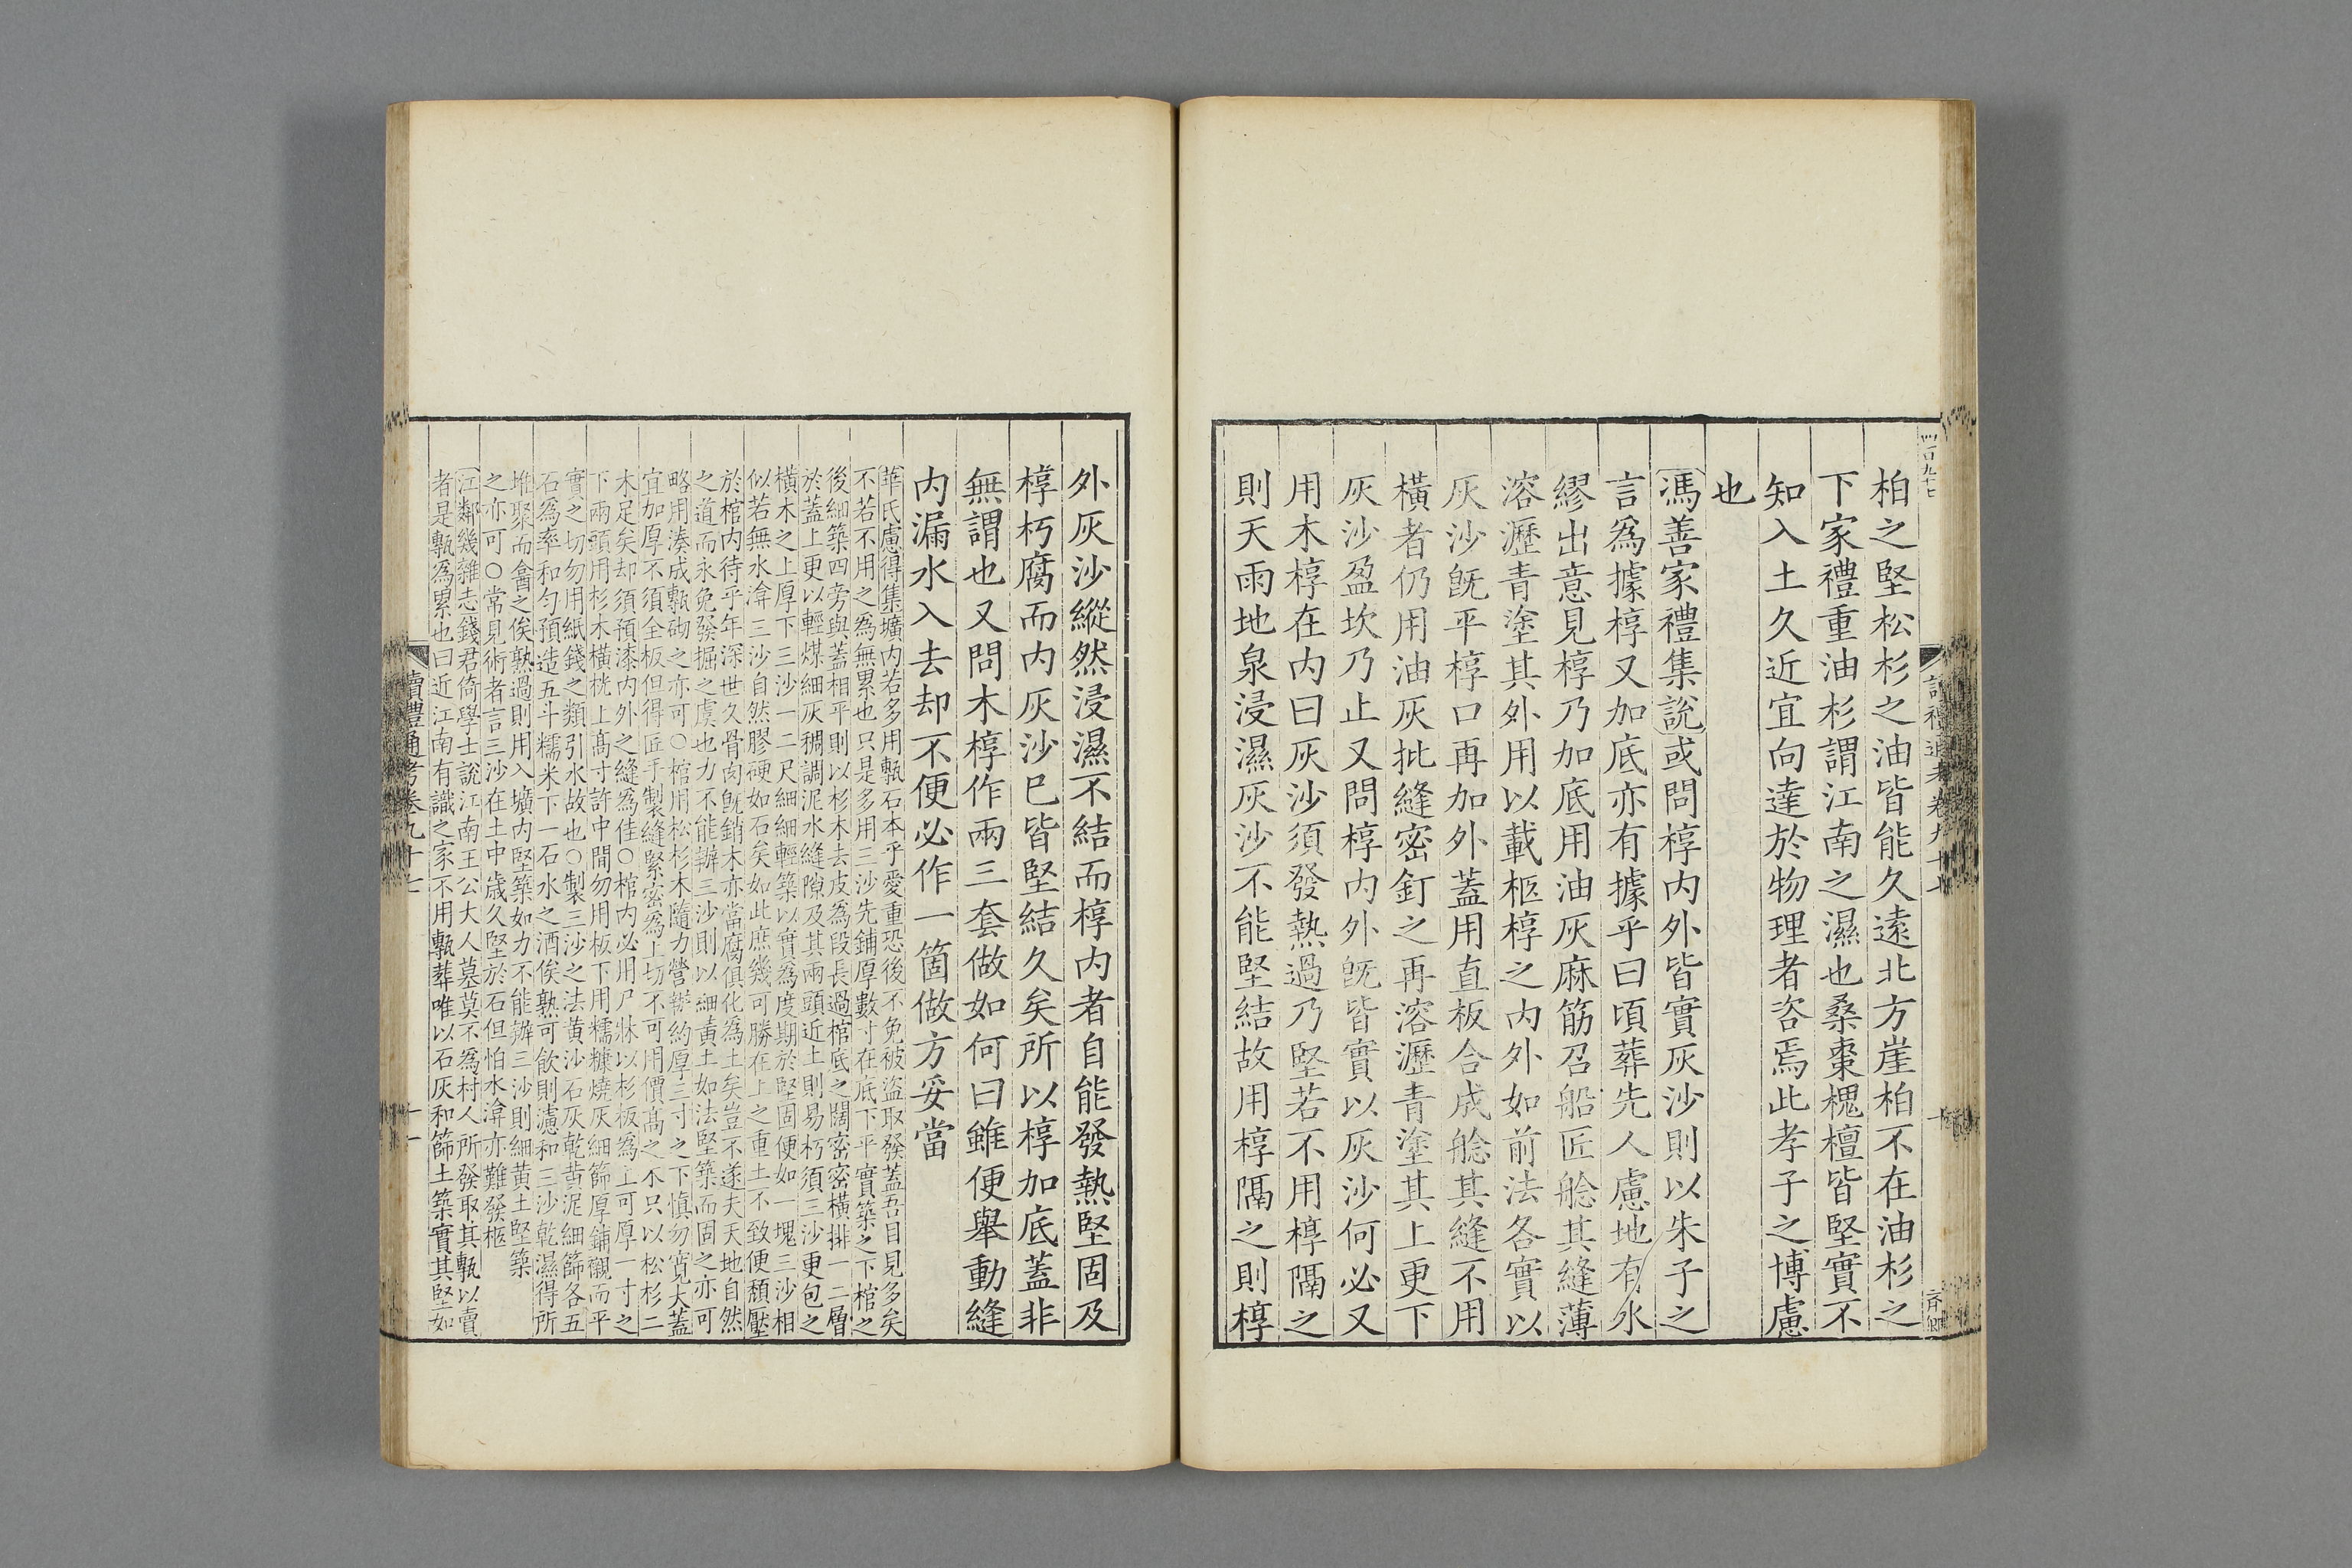 柏之堅松杉之油皆能久遠北方崖柏不在油杉之
下家禮重油杉謂江南之濕也桑棗槐檀皆堅實不
知入土久近宜向達於物理者咨焉此孝子之博慮
也
馮善家禮集說或問椁内外皆實灰沙則以朱子之
言爲據椁又加底亦有據乎曰頃葬先人慮地有水
繆出意見椁乃加底用油灰麻筋召船匠艌其縫薄
溶瀝青塗其外用以載柩椁之内外如前法各實以
灰沙旣平椁口再加外蓋用直板合成艌其縫不用
橫者仍用油灰批縫密釘之再溶瀝青塗其上更下
灰沙盈坎乃止又問椁内外旣皆實以灰沙何必又
用木椁在内曰灰沙須發熱過乃堅若不用椁隔之
則天雨地泉浸濕灰沙不能堅結故用椁隔之則椁
外灰沙縱然浸濕不結而椁内者自能發熱堅固及
椁朽腐而内灰沙已皆堅結久矣所以椁加底蓋非
無謂也又問木椁作兩三套做如何曰雖便舉動縫
内漏水入去却不便必作一箇做方妥當
華氏慮得集壙内若多用甎石本乎愛重恐後不免被盜取發蓋吾目見多矣
不若不用之爲無累也只是多用三沙先鋪厚數寸在底下平實築之下棺之
後細築四旁與蓋相平則以杉木去皮爲段長過棺底之闊密密橫排一二層
於蓋上更以輕煤細灰稠調泥水縫隙及其兩頭近土則易朽須三沙更包之
橫木之上厚下三沙一二尺細細輕築以實爲度期於堅固便如一塊三沙相
似若無水渰三沙自然膠硬如石矣如此庶幾可勝在上之重土不致便頹壓
於棺内待乎年深世久骨肉旣銷木亦當腐俱化爲土矣豈不遂夫天地自然
之道而永免發掘之虞也力不能辦三沙則以細黃土如法堅築而固之亦可
略用湊成甎砌之亦可○棺用松杉木隨力營辦約厚三寸之下愼勿寬大蓋
宜加厚不須全板但得匠手製縫緊密爲上切不可用價高之木只以松杉二
木足矣却須預漆内外之縫爲佳○棺内必用尸牀以杉板爲上可厚一寸之
下兩頭用杉木橫桄上高寸許中間勿用板下用糯糠燒灰細篩厚鋪襯而平
實之切勿用紙錢之類引水故也○製三沙之法黃沙石灰乾黃泥細篩各五
石爲率和勻預造五斗糯米下一石水之酒俟熟可飮則濾和三沙乾濕得所
堆聚而㑹之俟熟過則用入壙内堅築如力不能辦三沙則細黃土堅築
之亦可○常見術者言三沙在土中歲久堅於石但怕水渰亦難發柩
江鄰幾雜志錢君倚學士說江南王公大人墓莫不爲村人所發取其甎以賣
者是甎爲累也曰近江南有識之家不用甎葬唯以石灰和篩土築實其堅如
讀禮通考卷九十七